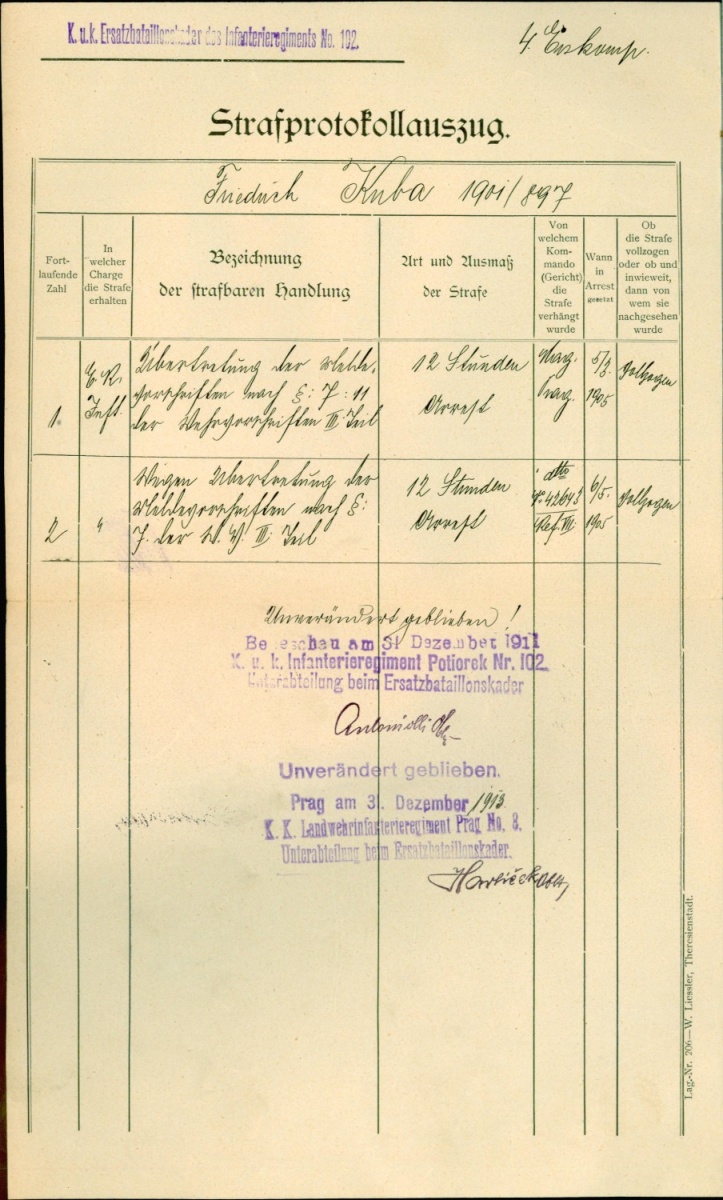 K. u. k. Ersatzbataillonskader des Infanterieregiments No. 102.
4. Erskomp.
Strafprotokollauszug.
Friedrich Kuba 1901/897
Fort-
laufende
Zahl
In
welcher
Charge
die Strafe
erhalten
Bezeichnung
der strafbaren Handlung
Art und Ausmaß
der Strafe
Von
welchem
Kom-
mando
(Gericht)
die
Strafe
verhängt
wurde
Wann
in
Arrest
gesetzt
Ob
die Strafe
vollzogen
oder ob und
inwieweit,
dann von
wem sie
nachgesehen
wurde
1.
E. R.
Inft.
Übertretung der Melde-
vorschriften nach §: 7: 11
der Wehrvorschriften III. Teil
12 Stunden
Arrest
Prag.
5/3.
1905
Vollzogen
2
"
Wegen Übertretung der
Meldevorschriften nach §:
7. der W. V. III. Teil
12 Stunden
Arrest
dtto
N. 42643
Ref. VI.
6/5.
1905
Vollzogen
Unverändert geblieben!
Beneschau am 31 Dezember 1911
K. u. k. Infanterieregiment Potiorek Nr. 102.
Unterabteilung beim Ersatzbataillonskader
Unverändert geblieben.
Prag am 31. Dezember 1913
K. K. Landwehrinfanterieregiment Prag No. 8.
Unterabteilung beim Ersatzbataillonskader.
Lag.-Nr. 206—W. Liessler, Theresienstadt.